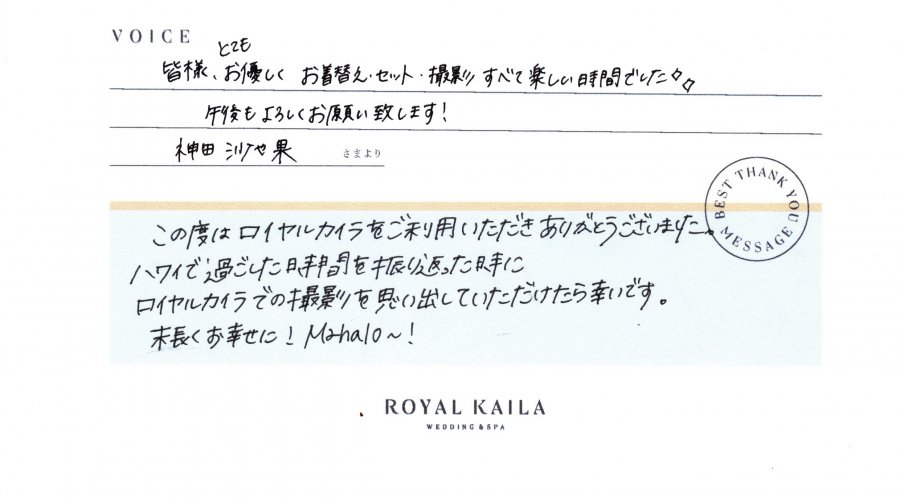 VOICE
とても
皆様、お優しく お着替え・セット・撮影 すべて楽しい時間でした◇◇
午後もよろしくお願い致します!
神田 沙也果 さまより
BEST THANK YOU MESSAGE
この度はロイヤルカイラをご利用いただきありがとうございました。
ハワイで過ごした時間を振り返った時に
ロイヤルカイラでの撮影を思い出していただけたら幸いです。
末長くお幸せに! Mahalo~!
ROYAL KAILA
WEDDING & SPA